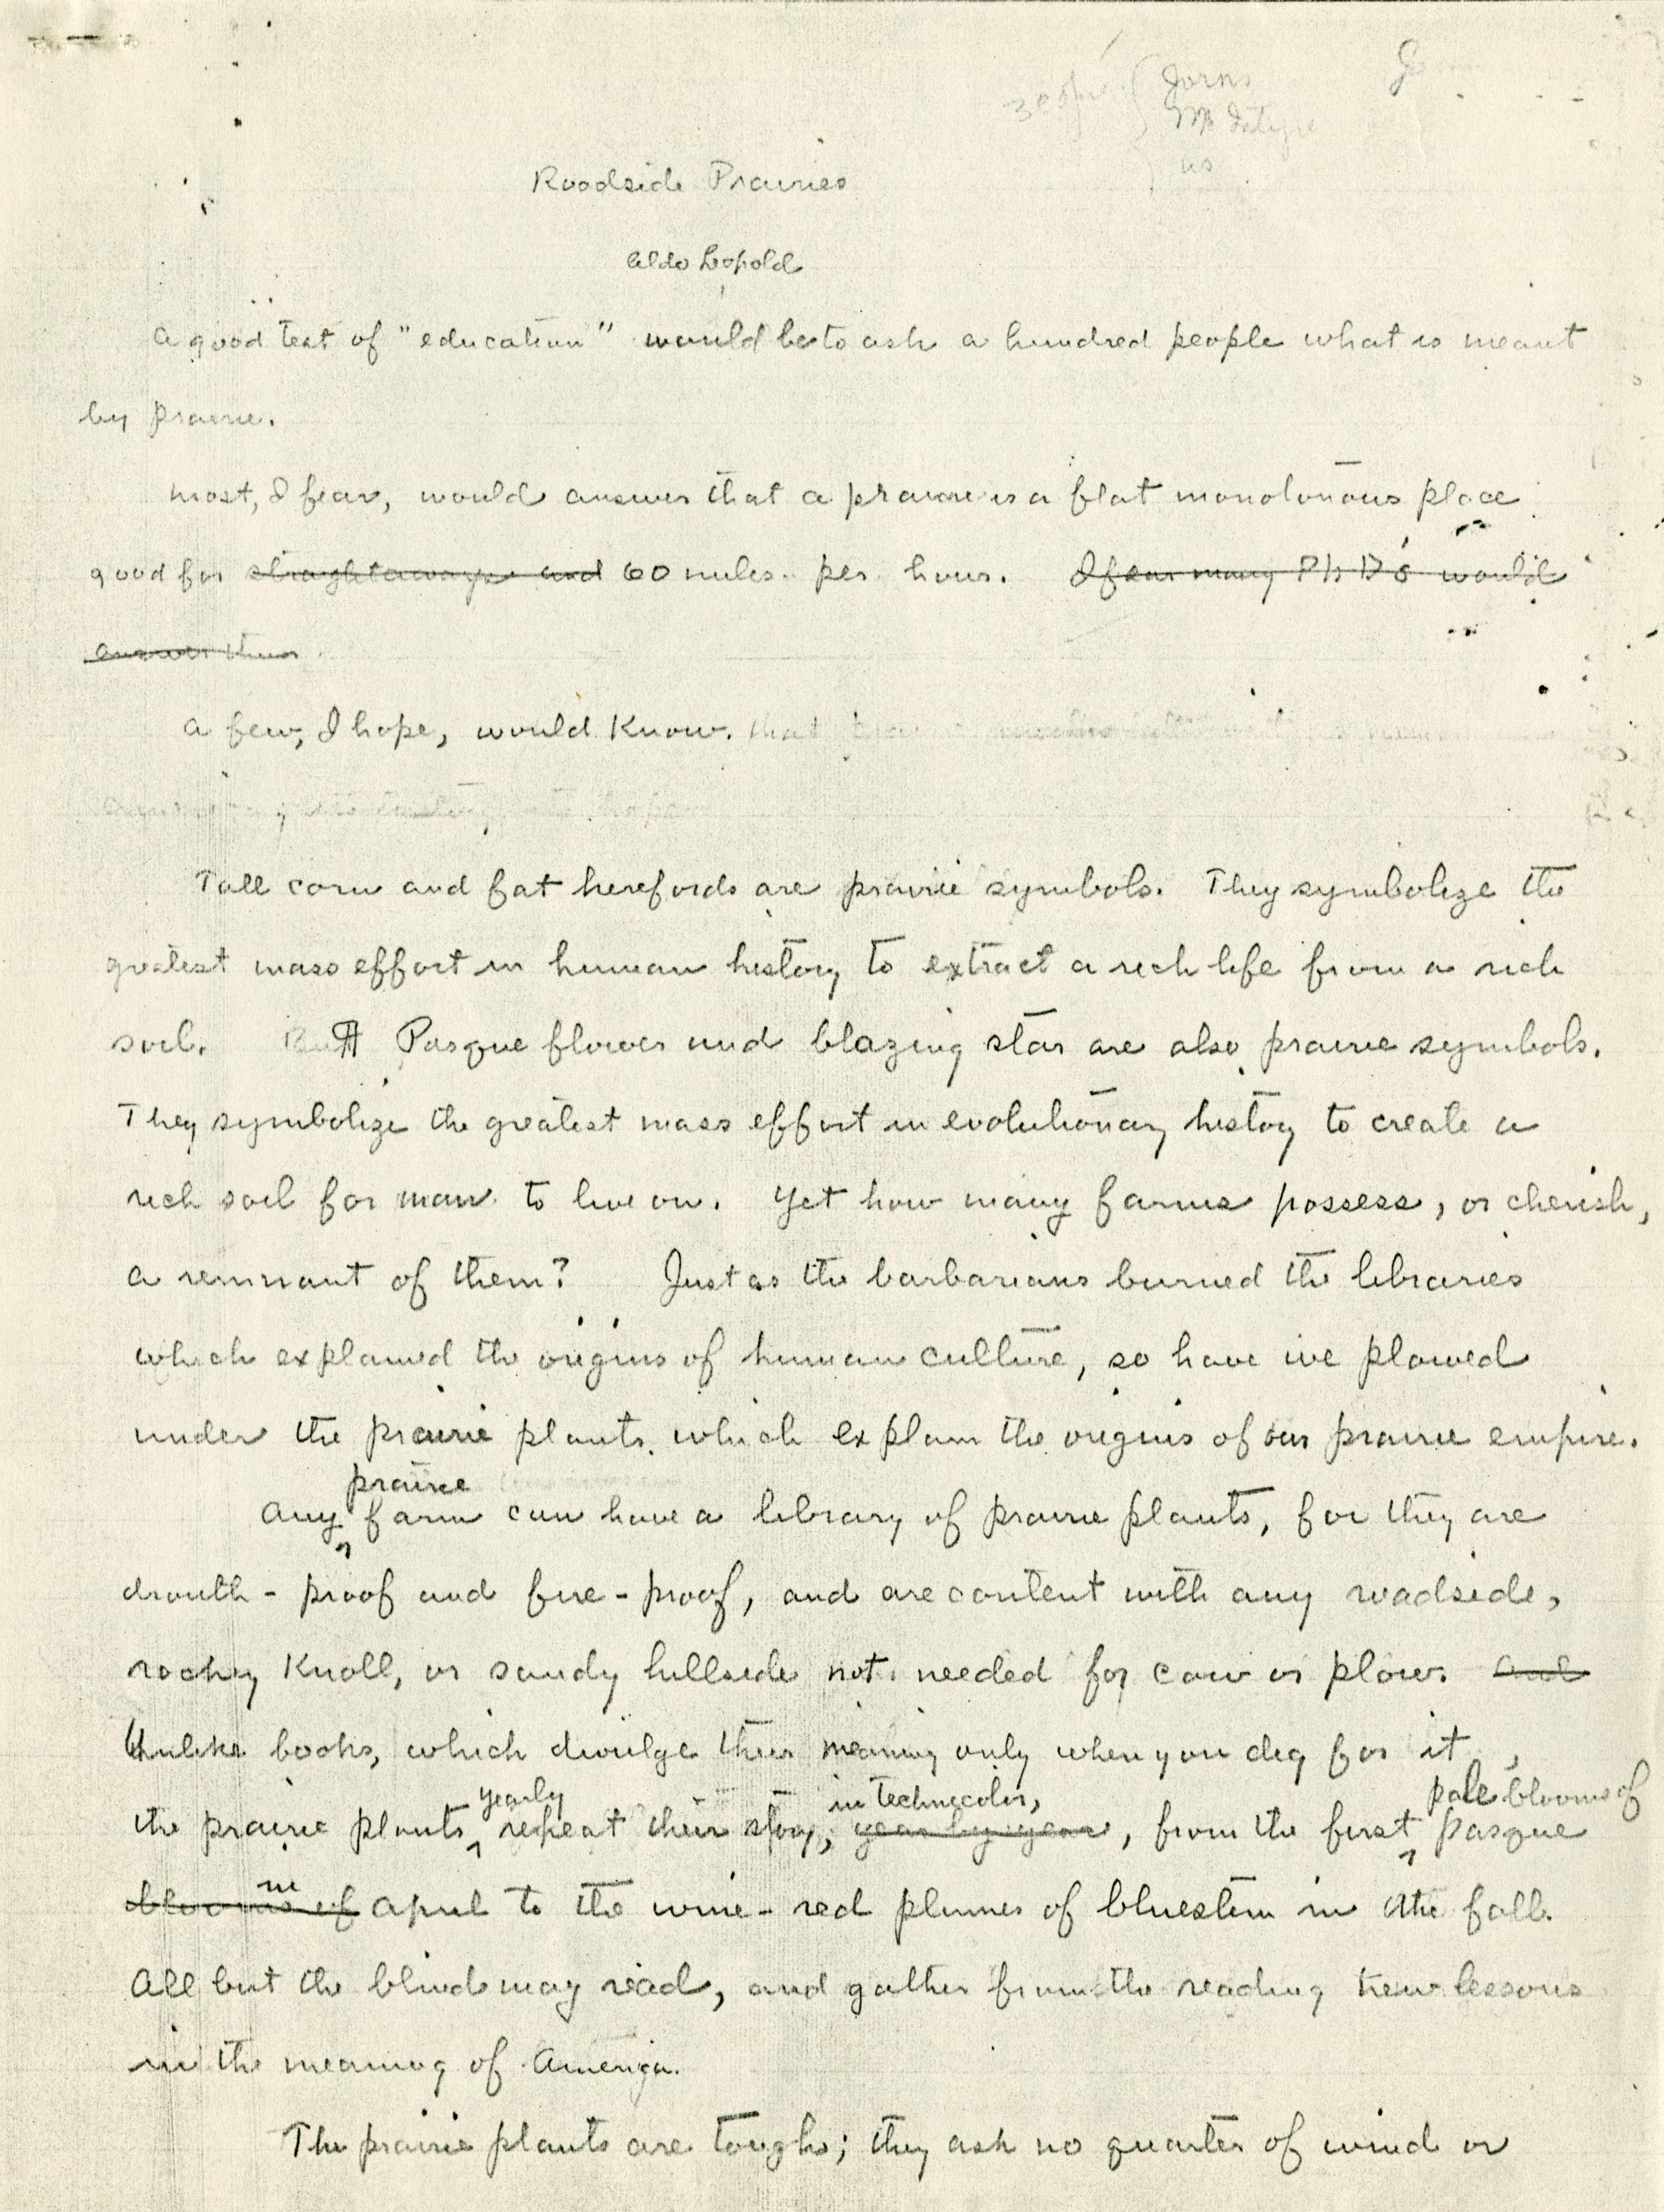 Jorns
us
Roadside Prairies
Aldo Leopold
A good test of "education" would be to ask a hundred people what is meant
by prairie.
Most, I fear, would answer that a prairie is a flat monotonous place
good for straightaways and 60 miles per hour. I fear many Ph D's would
answer thus
A few, I hope, would know. that
Tall corn and fat herefords are prairie symbols. They symbolize the
greatest mass effort in human history to extract a rich life from a rich
soil. But Pasque flower and blazing star are also prairie symbols.
They symbolize the greatest mass effort in evolutionary history to create a
rich soil for man to live on. Yet how many farms possess, or cherish,
a remnant of them? Just as the barbarians burned the libraries
which explained the origins of human culture, so have we plowed
under the prairie plants which explain the origins of our prairie empire.
prairie
Any farm can have a library of prairie plants, for they are
drouth-proof and fire-proof, and are content with any roadside,
rocky knoll, or sandy hillside not needed for cow or plow. and
Unlike books, which divulge their meaning only when you dig for it,
yearly in technicolor, pale blooms of
the prairie plants repeat their story, year by year, from the first pasque
in
blooms of April to the wine-red plumes of bluestem in the fall.
All but the blind may read, and gather from the reading new lessons
in the meaning of America.
The prairie plants are tough; they ask no quarter of wind or